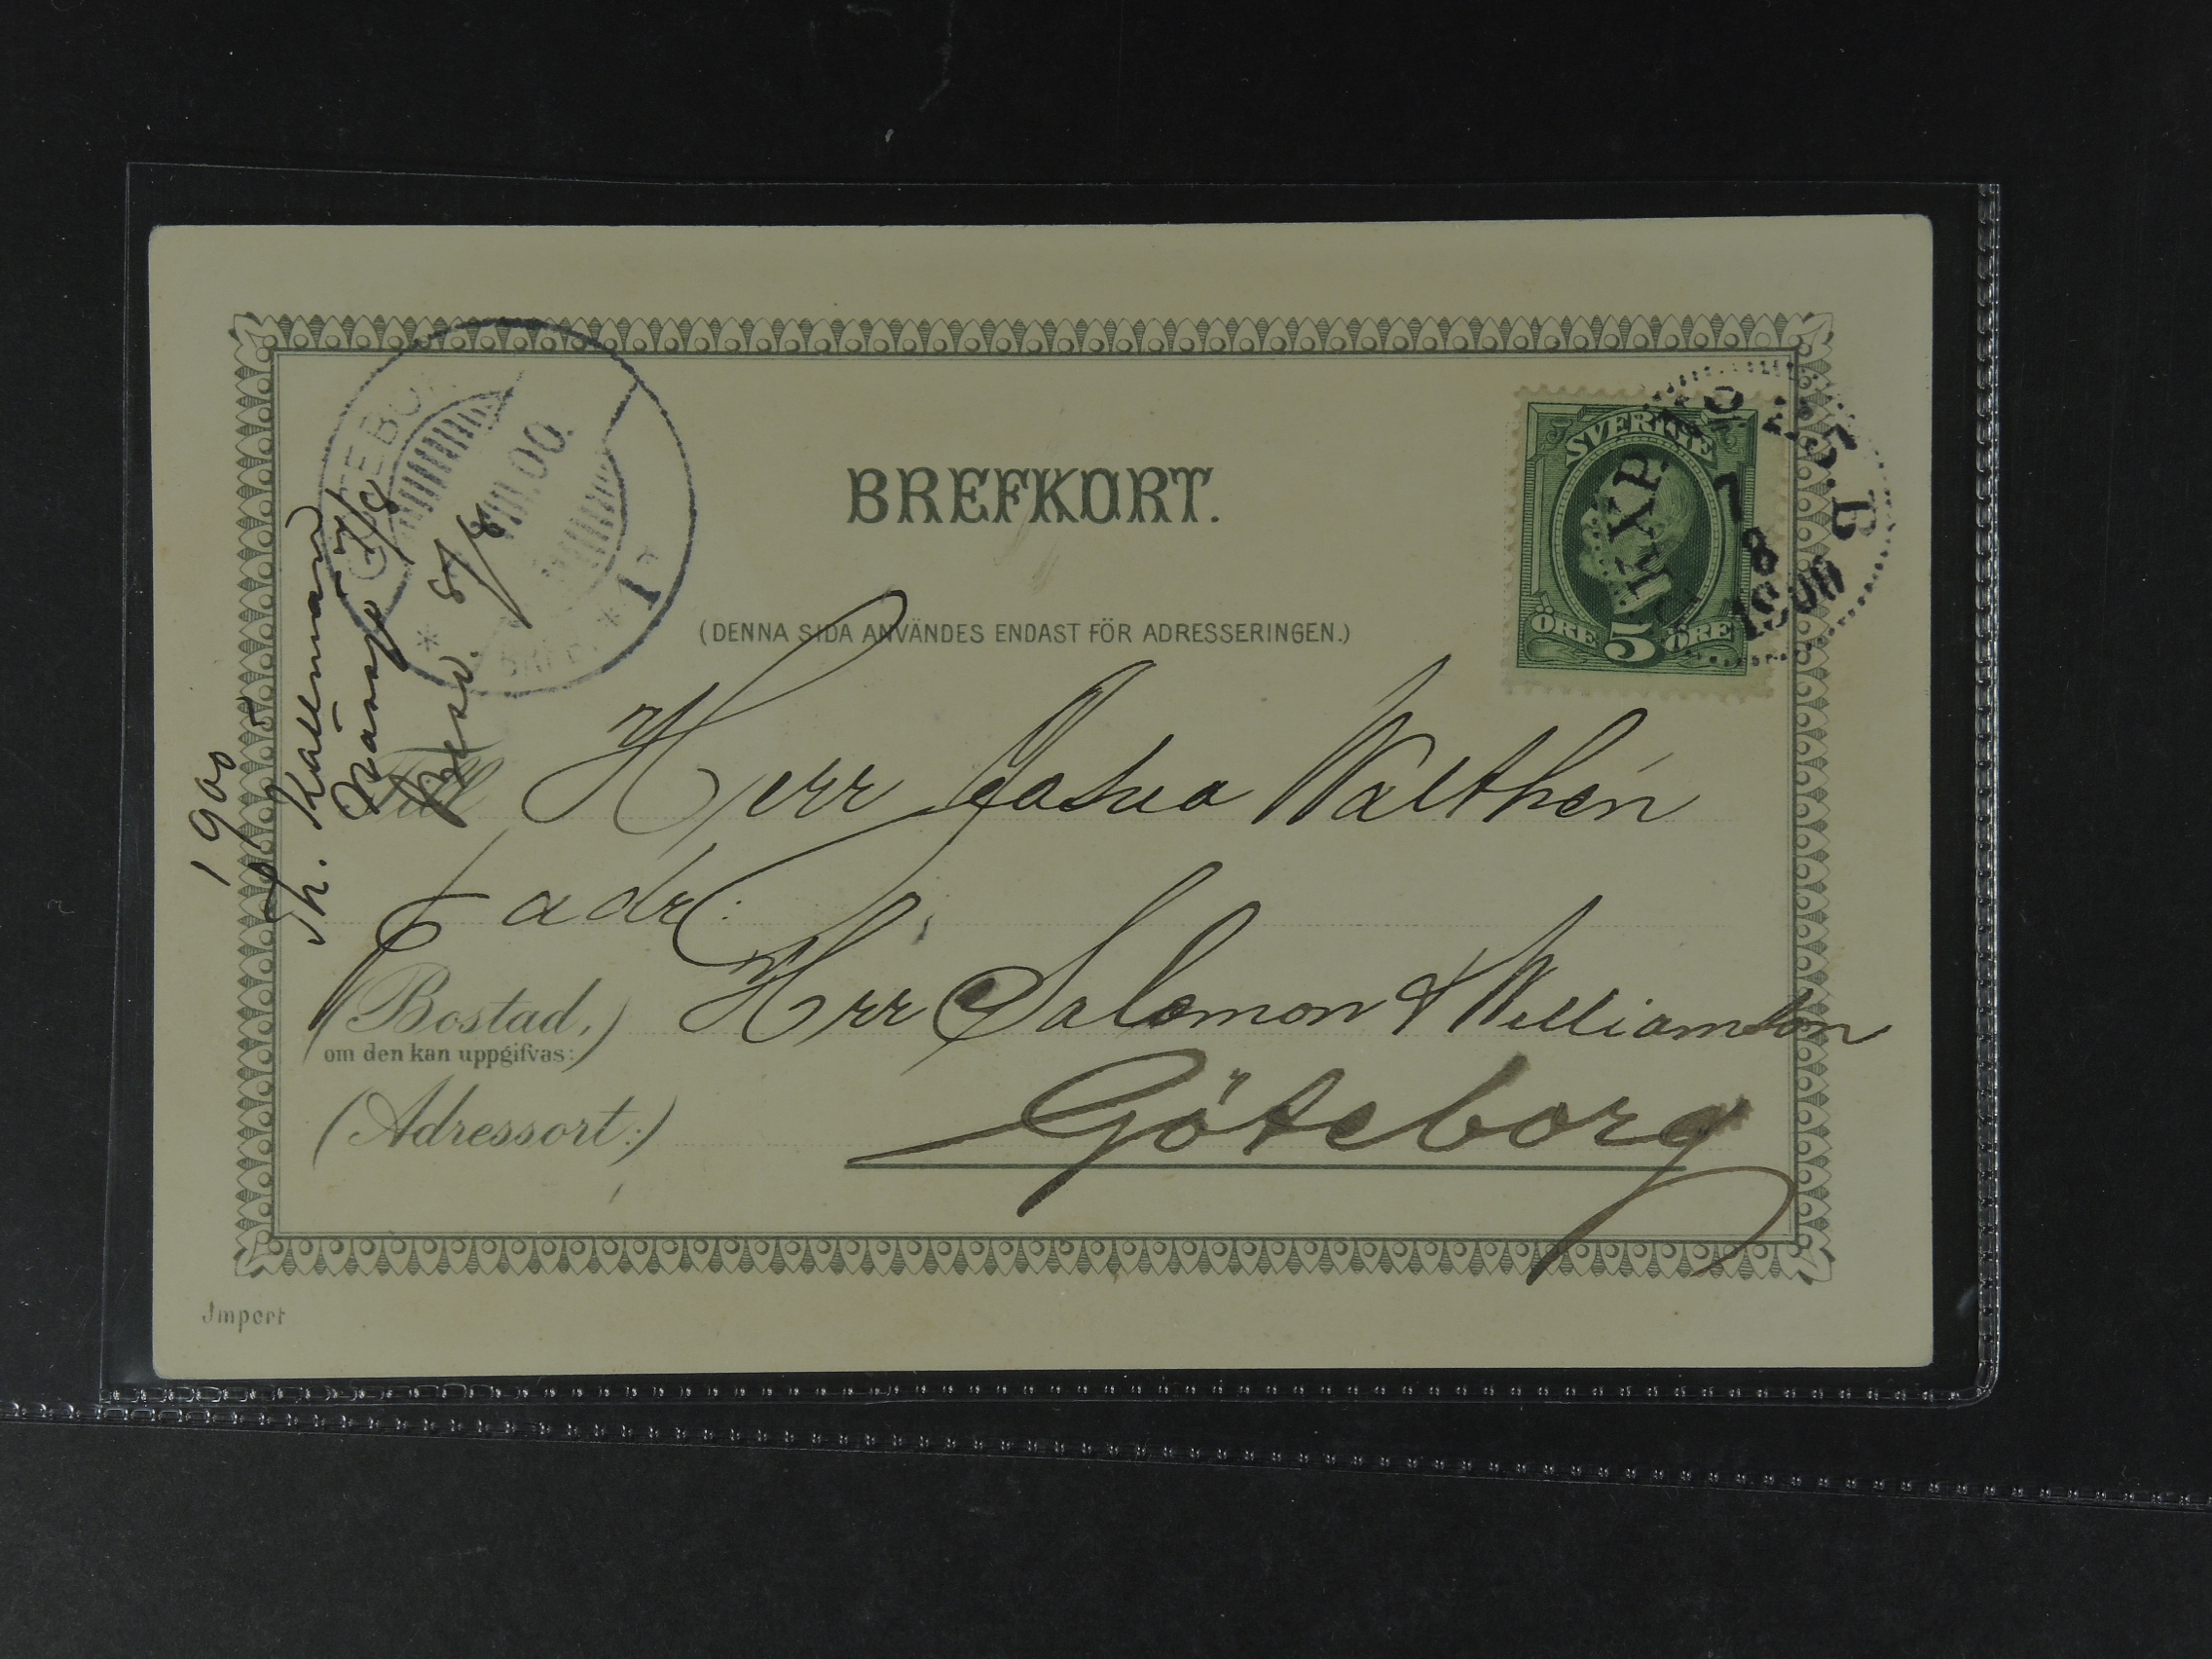 BREFKORT.
(DENNA SIDA ANVÄNDES ENDAST FÖR ADRESSERINGEN.)
SVERIGE
ÖRE 5 ÖRE
7
8
1900
1900
Th. Källmann
7/8
Besv. 8/8
Till Herr Josua Walthén
adr:
(Bostad,) Hrr Salomon & Williamson
om den kan uppgifvas:
(Adressort:) Göteborg
Import